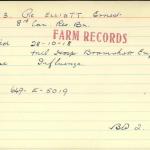 3. Pte ELLIOTT Ernest
8th Can. Res. Bn.
FARM RECORDS
28-10-18
Mil Hosp Bramshott Eng
Influenza
649-E-5019